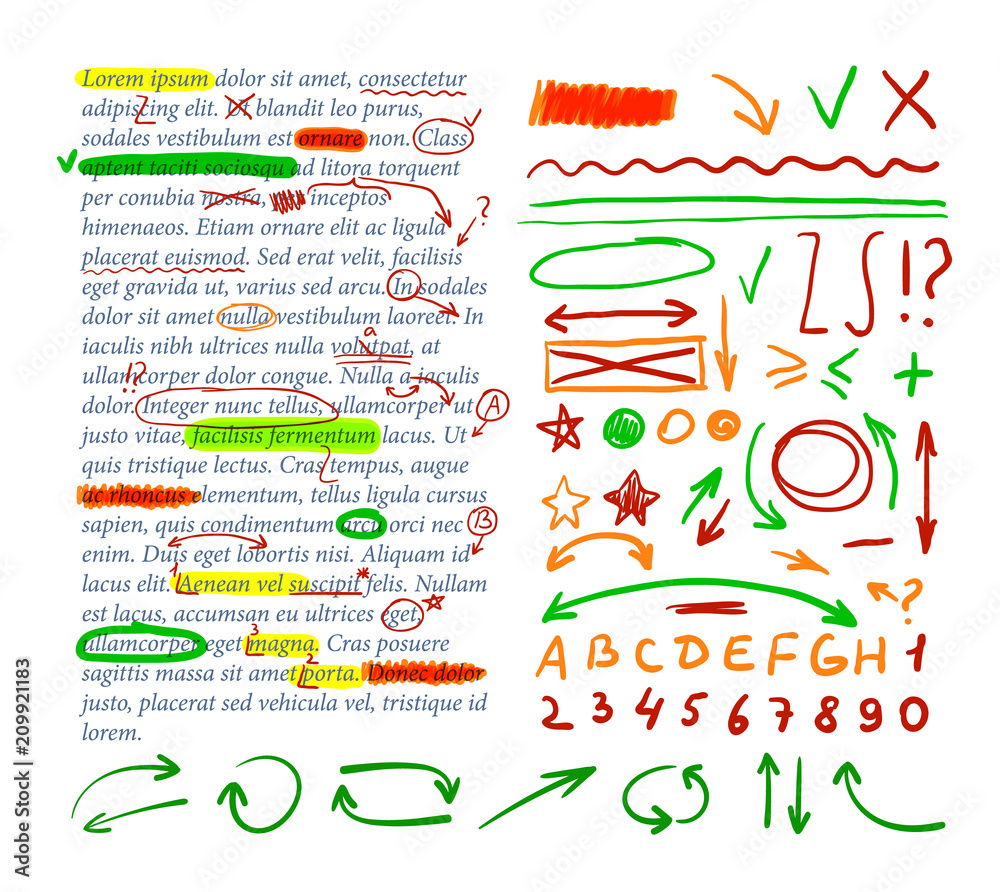 Lorem ipsum dolor sit amet, consectetur
adipiscing elit. Ut blandit leo purus,
sodales vestibulum est ornare non. Class
aptent taciti sociosqu ad litora torquent
per conubia nostra, inceptos
himenaeos. Etiam ornare elit ac ligula
?
placerat euismod. Sed erat velit, facilisis
eget gravida ut, varius sed arcu. In sodales
dolor sit amet nulla vestibulum laoreet. In
a
iaculis nibh ultrices nulla volutpat, at
!?
ullamcorper dolor congue. Nulla a iaculis
dolor. Integer nunc tellus, ullamcorper ut
A
justo vitae, facilisis fermentum lacus. Ut
quis tristique lectus. Cras tempus, augue
ac rhoncus elementum, tellus ligula cursus
sapien, quis condimentum arcu orci nec
B
enim. Duis eget lobortis nisi. Aliquam id
1
lacus elit. Aenean vel suscipit felis. Nullam
*
est lacus, accumsan eu ultrices eget,
3
ullamcorper eget magna. Cras posuere
2
sagittis massa sit amet porta. Donec dolor
justo, placerat sed vehicula vel, tristique id
lorem.
!?
≥ ≤ +
?
A B C D E F G H 1
2 3 4 5 6 7 8 9 0
Adobe Stock | #209921183